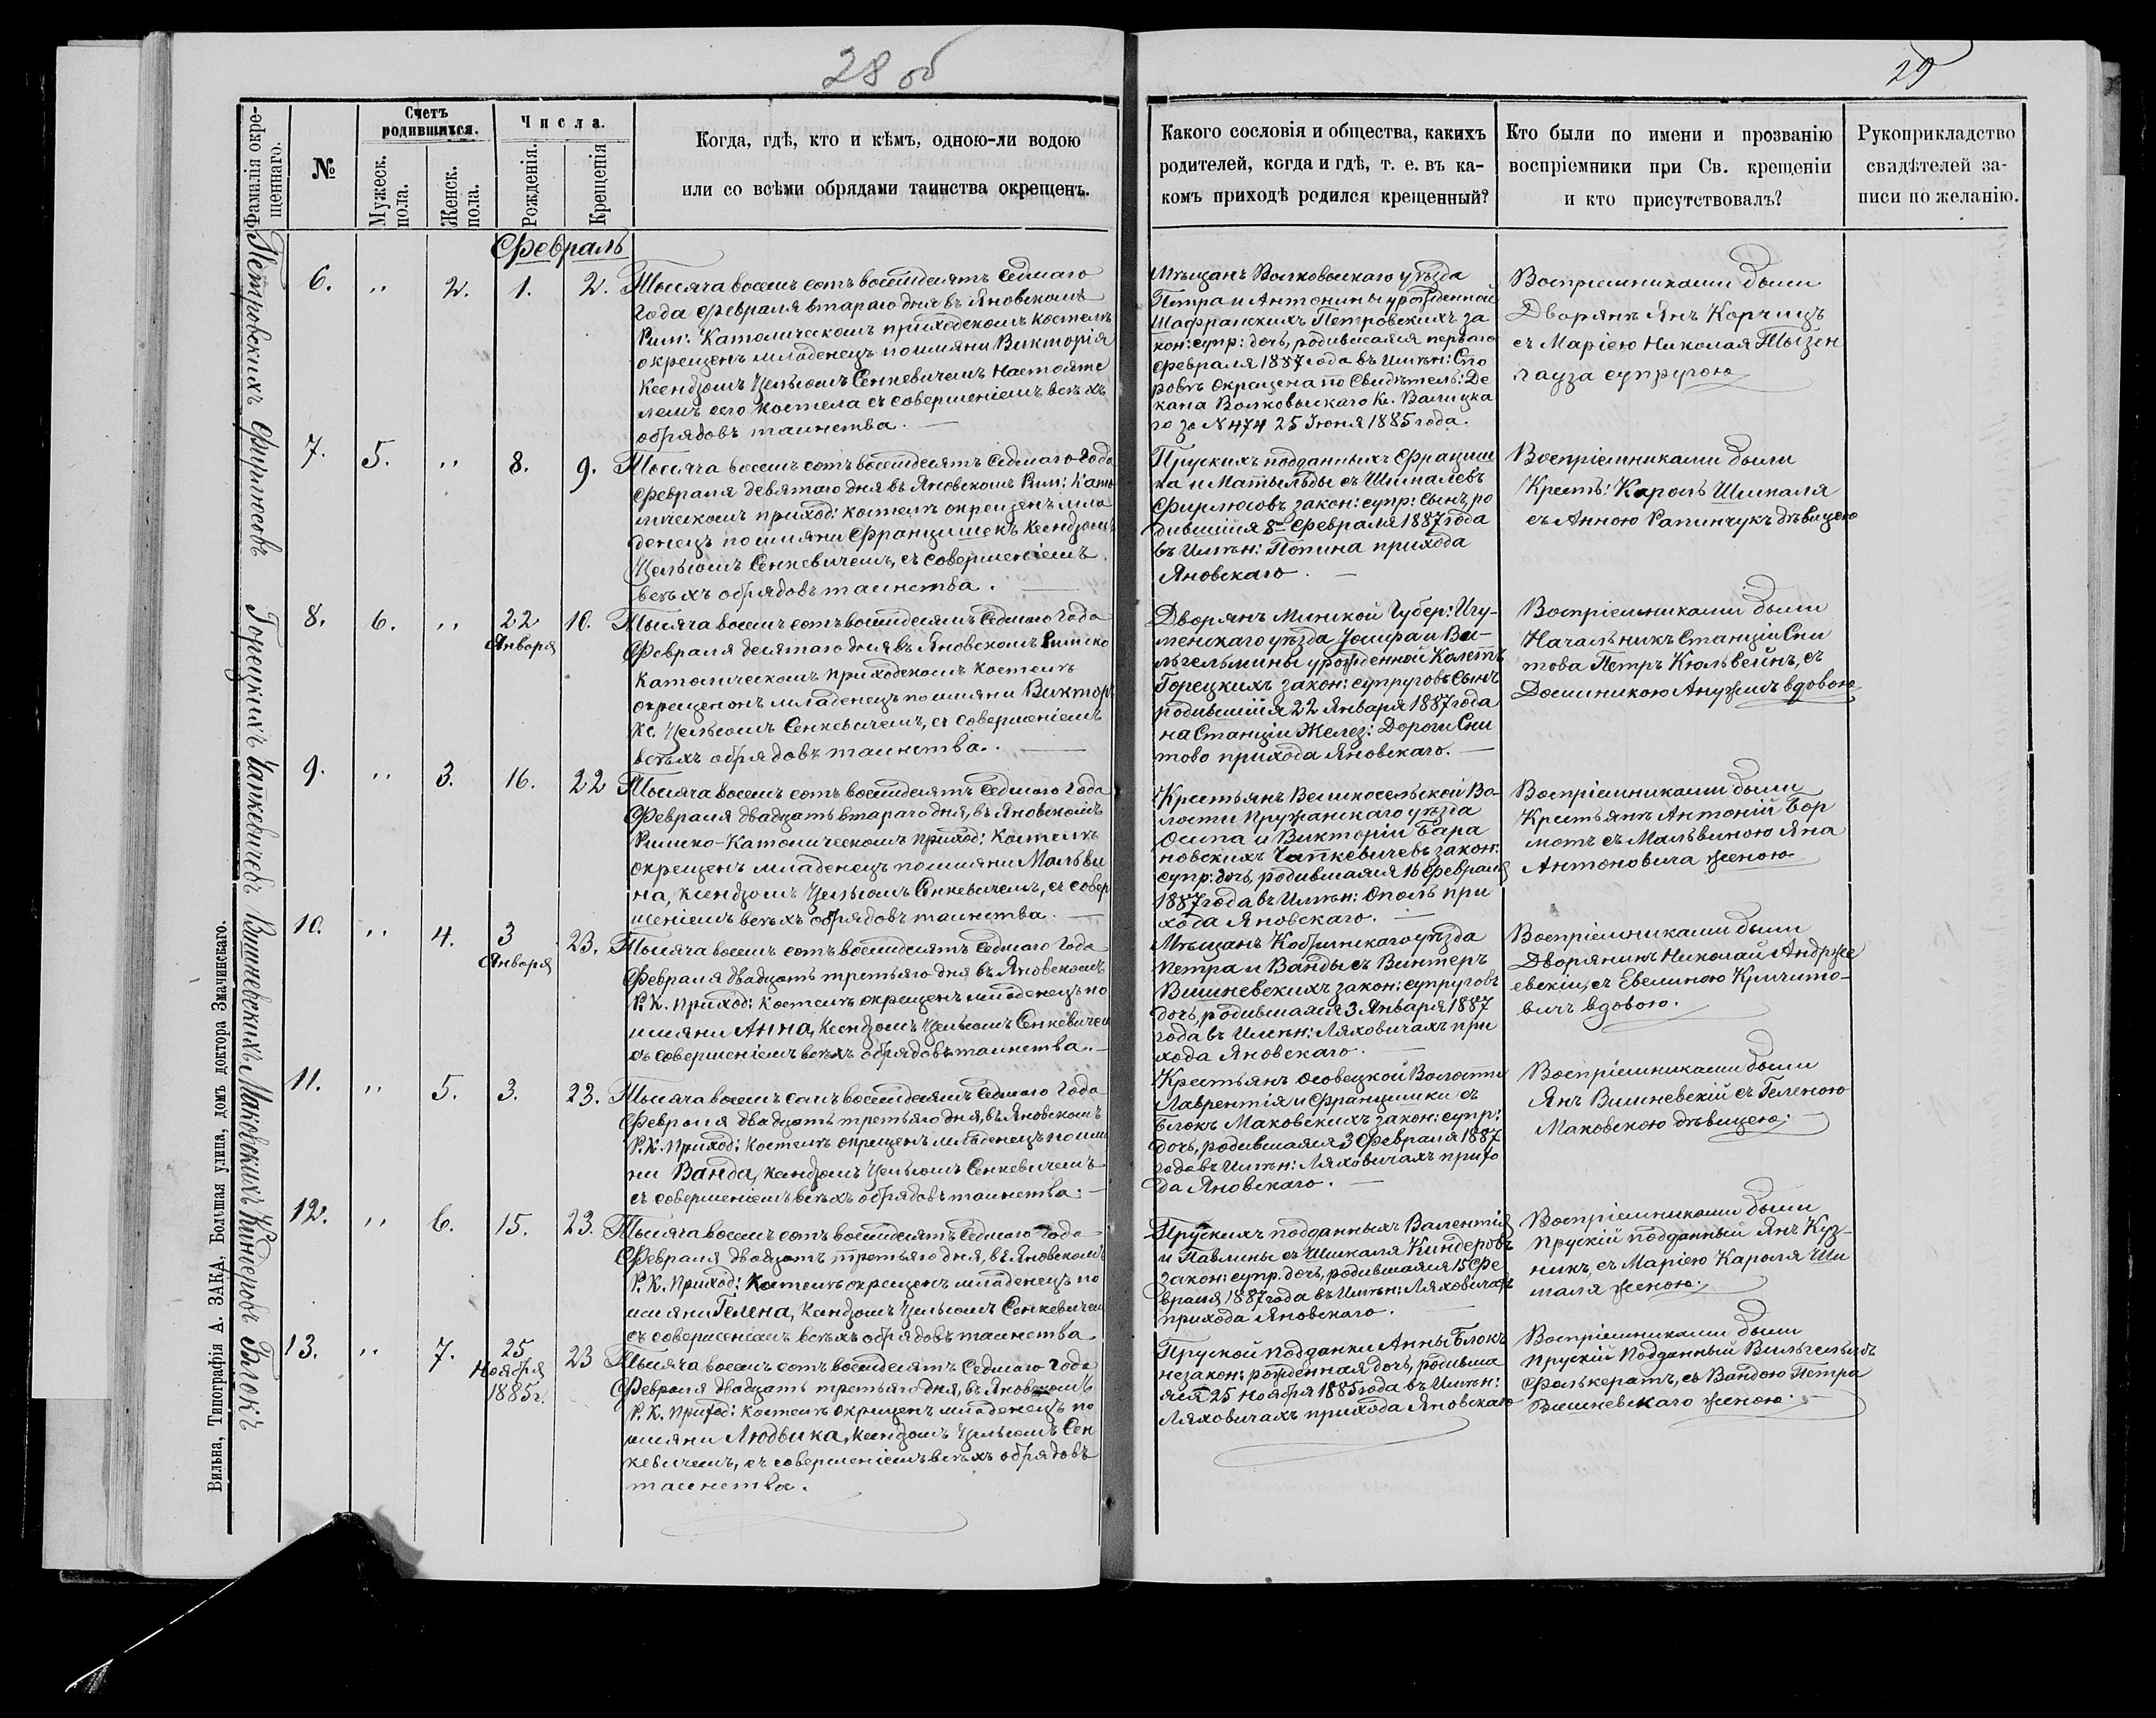 28 об
29
Фамилія окре-
щеннаго.
№
Счетъ
родившихся.
Мужеск.
пола.
Женск.
пола.
Числа.
Рожденія.
Крещенія
Когда, гдѣ, кто и кѣмъ, одною-ли водою
или со всѣми обрядами таинства окрещенъ.
Какого сословія и общества, какихъ
родителей, когда и гдѣ, т. е. въ ка-
комъ приходѣ родился крещенный?
Кто были по имени и прозванію
воспріемники при Св. крещеніи
и кто присутствовалъ?
Рукоприкладство
свидѣтелей за-
писи по желанію.
Февраль
Петровскихъ
6. " 2. 1. 2.
Тысяча восемь сотъ восемдесятъ седмаго
года Февраля втараго дня въ Яновскомъ
Рим: Католическомъ приходскомъ костелѣ
окрещенъ младенецъ поимяни Викторія
Ксендзомъ Цельсомъ Сенкевичемъ Настояте
лемъ сего костела съ совершеніемъ всѣхъ
обрядовъ таинства.
Мѣщанъ Волковыскаго уѣзда
Петра и Антонины урожденной
Шафранскихъ Петровскихъ за
кон: супр: дочь, родившаяся перваго
Февраля 1887 года въ Имѣн: Спо
ровѣ окрещена по Свидѣтель: Де
кана Волковыскаго Кс. Валицка
го за № 474 25 Іюня 1885 года.
Воспріемниками были
Дворянѣ Янъ Корчицъ
съ Маріею Николая Тызен
гауза супругою
Фирлюсовъ
7. 5. " 8. 9.
Тысяча восемь сотъ восемдесятъ седмаго года
Февраля девятаго дня въ Яновскомъ Рим: Като
лическомъ приход: костелѣ окрещенъ мла
денецъ поимяни Францишекъ Ксендзомъ
Цельсомъ Сенкевичемъ, съ совершеніемъ
всѣхъ обрядовъ таинства.
Прускихъ подданныхъ Францыш
ка и Матыльды съ Шималевъ
Фирлюсовъ закон: супр: сынъ, ро
дившійся 8го Февраля 1887 года
въ Имѣн: Попина прихода
Яновскаго.
Воспріемниками были
Крест: Кароль Шималя
съ Анною Рапинчукъ дѣвицею
Горецкихъ
8. 6. " 22 Января 10.
Тысяча восемь сотъ восемдесятъ седмаго года
Февраля десятаго дня въ Яновскомъ Римско
Католическомъ приходскомъ костелѣ
окрещенонъ младенецъ поимяни Викторъ
Кс. Цельсомъ Сенкевичемъ, съ совершеніемъ
всѣхъ обрядовъ таинства.
Дворянъ Минской Губер: Игу-
менскаго уѣзда Іосифа и Ви-
льгельмины урожденной Колетъ
Горецкихъ закон: супруговъ сынъ
родившійся 22 Января 1887 года
на Станціи Желез: Дороги Сни
тово прихода Яновскаго.
Воспріемниками были
Начальникъ Станціи Сни
това Петръ Кюльвейнъ, съ
Доминикою Анужисъ вдовою
Чапкевичевъ
9. " 3. 16. 22
Тысяча восемь сотъ восемдесятъ седмаго года
Февраля двадцать втараго дня, въ Яновскомъ
Римско-Католическомъ приход: Костелѣ
окрещенъ младенецъ поимяни Мальви
на, Ксендзомъ Цельсомъ Сенкевичемъ, съ совер
шеніемъ всѣхъ обрядовъ таинства.
Крестьянъ Великосельской Во-
лости Пружанскаго уѣзда
Осипа и Викторіи Бара
новскихъ Чапкевичевъ закон:
супр: дочь, родившаяся 16 Февраля
1887 года въ Имѣн: Ополь при
хода Яновскаго.
Воспріемниками были
Крестьянѣ Антоній Бор
мотъ съ Мальвиною Яна
Антоновича женою
Вишневскихъ
10. " 4. 3 Января 23.
Тысяча восемь сотъ восемдесятъ седмаго года
Февраля двадцать третьяго дня въ Яновскомъ
Р. К. Приход: Костелѣ окрещенъ младенецъ по
имяни Анна, Ксендзомъ Цельсомъ Сенкевичем
съ совершеніемъ всѣхъ обрядовъ таинства.
Мѣщанъ Кобринскаго уѣзда
Петра и Ванды съ Винтеръ
Вишневскихъ закон: супруговъ
дочь, родившаяся 3 Января 1887
года въ Имѣн: Ляховичахъ при
хода Яновскаго.
Воспріемниками были
Дворянинъ Николай Андрже
евскій, съ Евелиною Кличито-
вичъ вдовою.
Маковскихъ
11. " 5. 3. 23.
Тысяча восемь сотъ восемдесятъ седмаго года
Февраля двадцать третьяго дня, въ Яновскомъ
Р. К. Приход: Костелѣ окрещенъ младенецъ поимя
ни Ванда, Ксендзомъ Цельсомъ Сенкевичемъ
съ совершеніемъ всѣхъ обрядовъ таинства.
Крестьянъ Осовецкой Волости
Лаврентія и Францишки съ
Блокъ Маковскихъ закон: супр:
дочь, родившаяся 3 Февраля 1887
года въ Имѣн: Ляховичахъ прихо
да Яновскаго.
Воспріемниками были
Янъ Вишневскій съ Геленою
Маковскою дѣвицею.
Киндеровъ
12. " 6. 15. 23.
Тысяча восемь сотъ восемдесятъ седмаго года
Февраля двадцать третьяго дня, въ Яновскомъ
Р. К. Приход: Костелѣ окрещенъ младенецъ по
имяни Гелена, Ксендзомъ Цельсомъ Сенкевичем
съ совершеніемъ всѣхъ обрядовъ таинства
Прускихъ подданныхъ Валентія
и Павлины съ Шималя Киндеровъ
закон: супр. дочь, родившаяся 15 Фе
враля 1887 года въ Имѣн: Ляховичахъ
прихода Яновскаго.
Воспріемниками были
Прускій подданный Янъ Куз-
никъ, съ Маріею Кароля Ши
маля женою.
Блокъ
13. " 7. 25 Ноября 1885г. 23
Тысяча восемь сотъ восемдесятъ седмаго года
Февраля двадцать третьяго дня, въ Яновскомъ
Р. К. Приход: Костелѣ окрещенъ младенецъ по
имяни Людвика, Ксендзомъ Цельсомъ Сен
кевичемъ, съ совершеніемъ всѣхъ обрядовъ
таинства.
Пруской подданки Анны Блокъ
незакон: рожденная дочь, родивша
яся 25 Ноября 1885 года въ Имѣн:
Ляховичахъ прихода Яновскаго
Воспріемниками были
Прускій Подданный Вильгельмъ
Фолькератъ, съ Вандою Петра
Вишневскаго женою.
Вильна, Типографія А. ЗАКА, Большая улица, домъ доктора Змачинскаго.